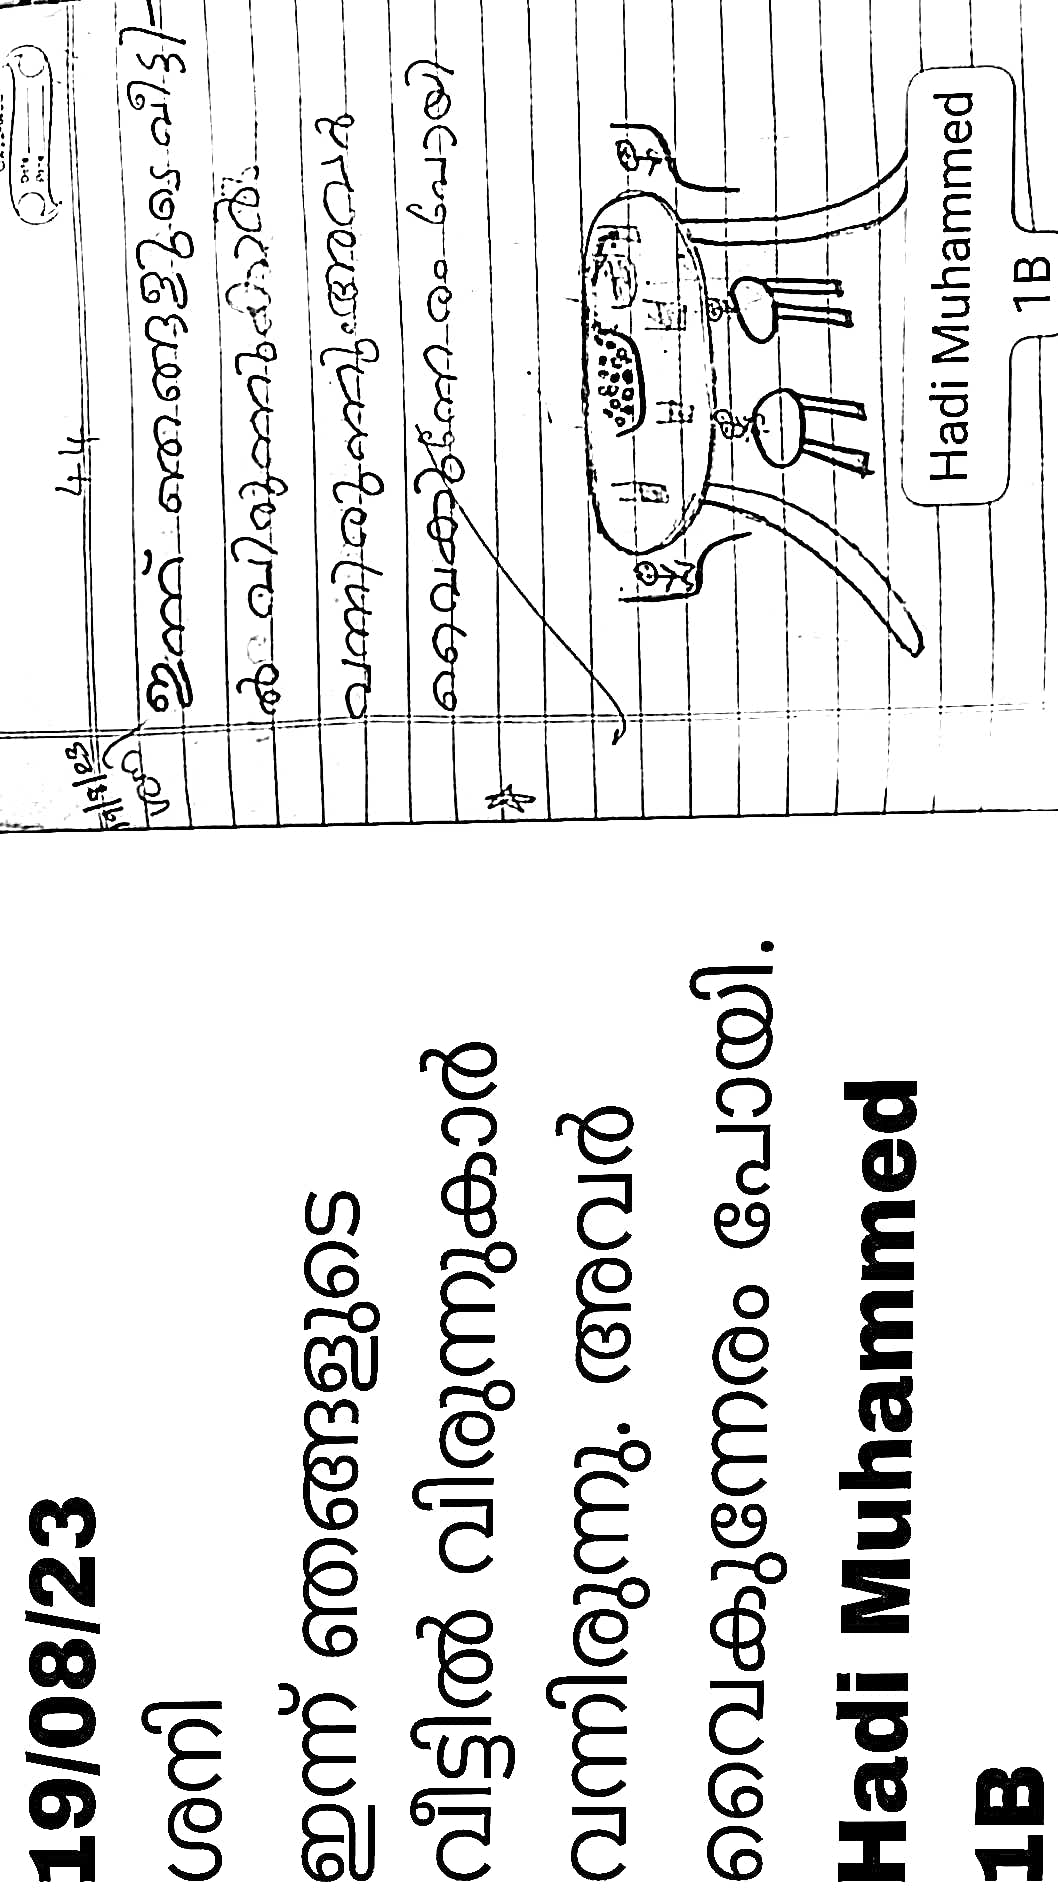 19/08/23
ശനി
ഇന്ന് ഞങ്ങളുടെ
വീട്ടിൽ വിരുന്നുകാർ
വന്നിരുന്നു. അവർ
വൈകുന്നേരം പോയി.
Hadi Muhammed
1B
44
19/8/23
ശനി
ഇന്ന് ഞങ്ങളുടെ വീട്ടി
ൽ വിരുന്നുകാർ
വന്നിരുന്നു. അവർ
വൈകുന്നേരം പോയി
Hadi Muhammed
1B